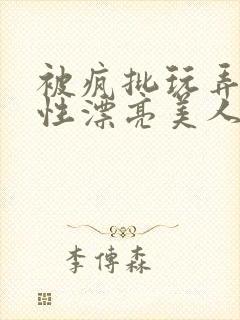 被疯批玩弄
性漂亮美人
李傅森